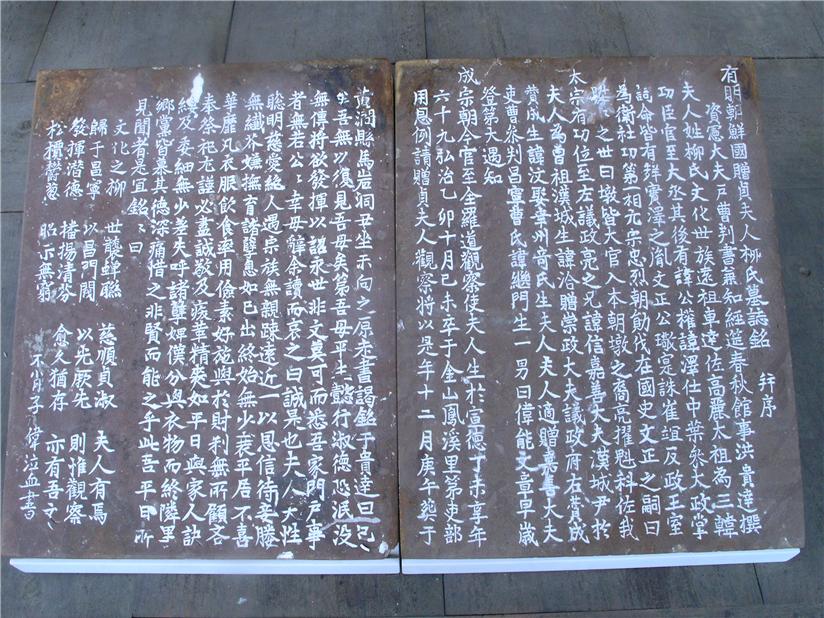 有明朝鮮國贈貞夫人柳氏墓誌銘 幷序
資憲大夫戶曹判書兼知經筵春秋館事洪貴達撰
夫人姓柳氏文化世族遠祖車達佐高麗太祖為三韓
功臣官至大丞其後有諱公權諱澤仕中葉參大政掌
誥命皆有鮮實澤之胤文正公璥寔誅崔竩反政王室
為衛社功第一相元宗忠烈朝勳伐在國史文正之嗣曰
之世曰墩皆大官入本朝墩之裔亮擢魁科佐我
太宗有功位至左議政亮之兄諱信嘉善大夫漢城尹於
夫人為曾祖漢城生諱洽贈崇政大夫議政府左贊成
贊成生諱汶娶幸州奇氏生夫人夫人適贈嘉善大夫
吏曹參判昌寧曹氏諱繼門生一男曰偉能文章早歲
登第大遇知
成宗朝今官至全羅道觀察使夫人生於宣德丁未享年
六十九弘治乙卯十月己未卒于金山鳳溪里第吏部
用恩例請贈貞夫人觀察將以是年十二月庚午葬于
黃澗縣馬岩洞丑坐未向之原走書謁銘于貴達曰已
生吾無以復見吾母矣第吾母平生懿行淑德恐泯没
無傳將欲發揮以詔永世非文莫可而悉吾家門戶事
者無若公公幸毋辭余讀而哀之曰誠是也夫人天性
聡明慈愛絶人遇宗族無親疎遠近一以恩信待妾媵
無纖芥嫌撫育諸孽息如已出終始無少衰平居不喜
華靡凡衣服飲食率用儉素好施與於財利無所顧吝
奉祭祀尤謹必盡誠敬及疾革精爽如平日與家人訣
纏及委細無少差失呼諸孽婢僕分與衣物而終隣里
鄉黨皆慕其德深痛惜之非賢而能之乎此吾平日所
見聞者是宜銘銘曰
文化之柳 世襲蟬聯 慈順貞淑 夫人有焉
歸于昌寧 以昌門閥 以先厥先 則惟觀察
發揮潜德 播揚清芬 愈久猶存 亦有吾文
松檟欝葱 昭示無窮
不肖子偉泣血書